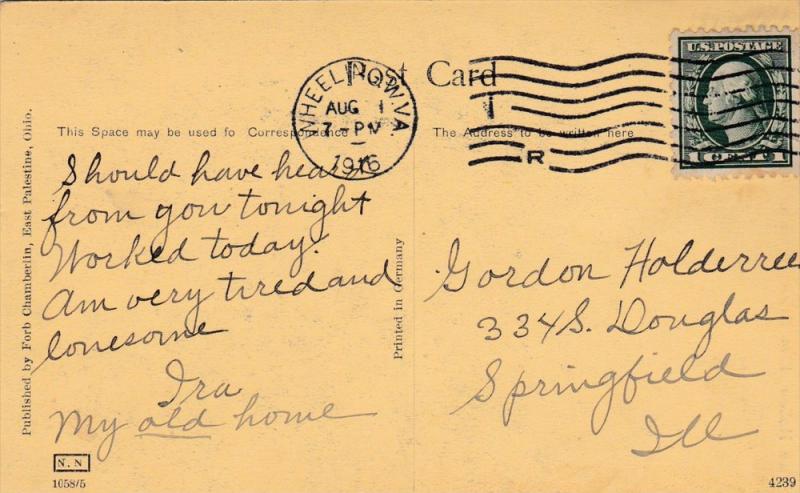 Post Card
U.S. POSTAGE
WHEELING W VA
AUG 1
7 - PM
1916
R
1 CENT 1
This Space may be used fo Correspondence
The Address to be written here
Should have heard
from you tonight
Worked today.
Am very tired and
lonesome
Ira
My old home
Gordon Holderree
334 S. Douglas
Springfield
Ill
Published by Forb Chamberlin, East Palestine, Ohio.
Printed in Germany
N. N
1058/5
4239